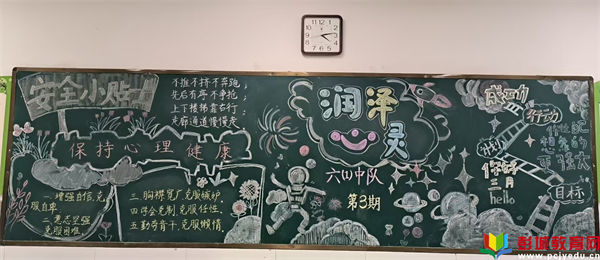 安全小贴士
不推不挤不奔跑,
先后有序不争抢;
上下楼梯靠右行,
走廊通道慢慢走。
保持心理健康
一.增强自信,克
服自卑
二.意志坚强
克服困难
三.胸襟宽广克服嫉妒,
四学会克制,克服任性,
五勤奋肯干,克服懒惰.
润泽
灵
中队
第3期
成功
行动
计划
目标
你好
三月
hello
想象的
更强大
彭城教育网
www.pcjyedu.cn